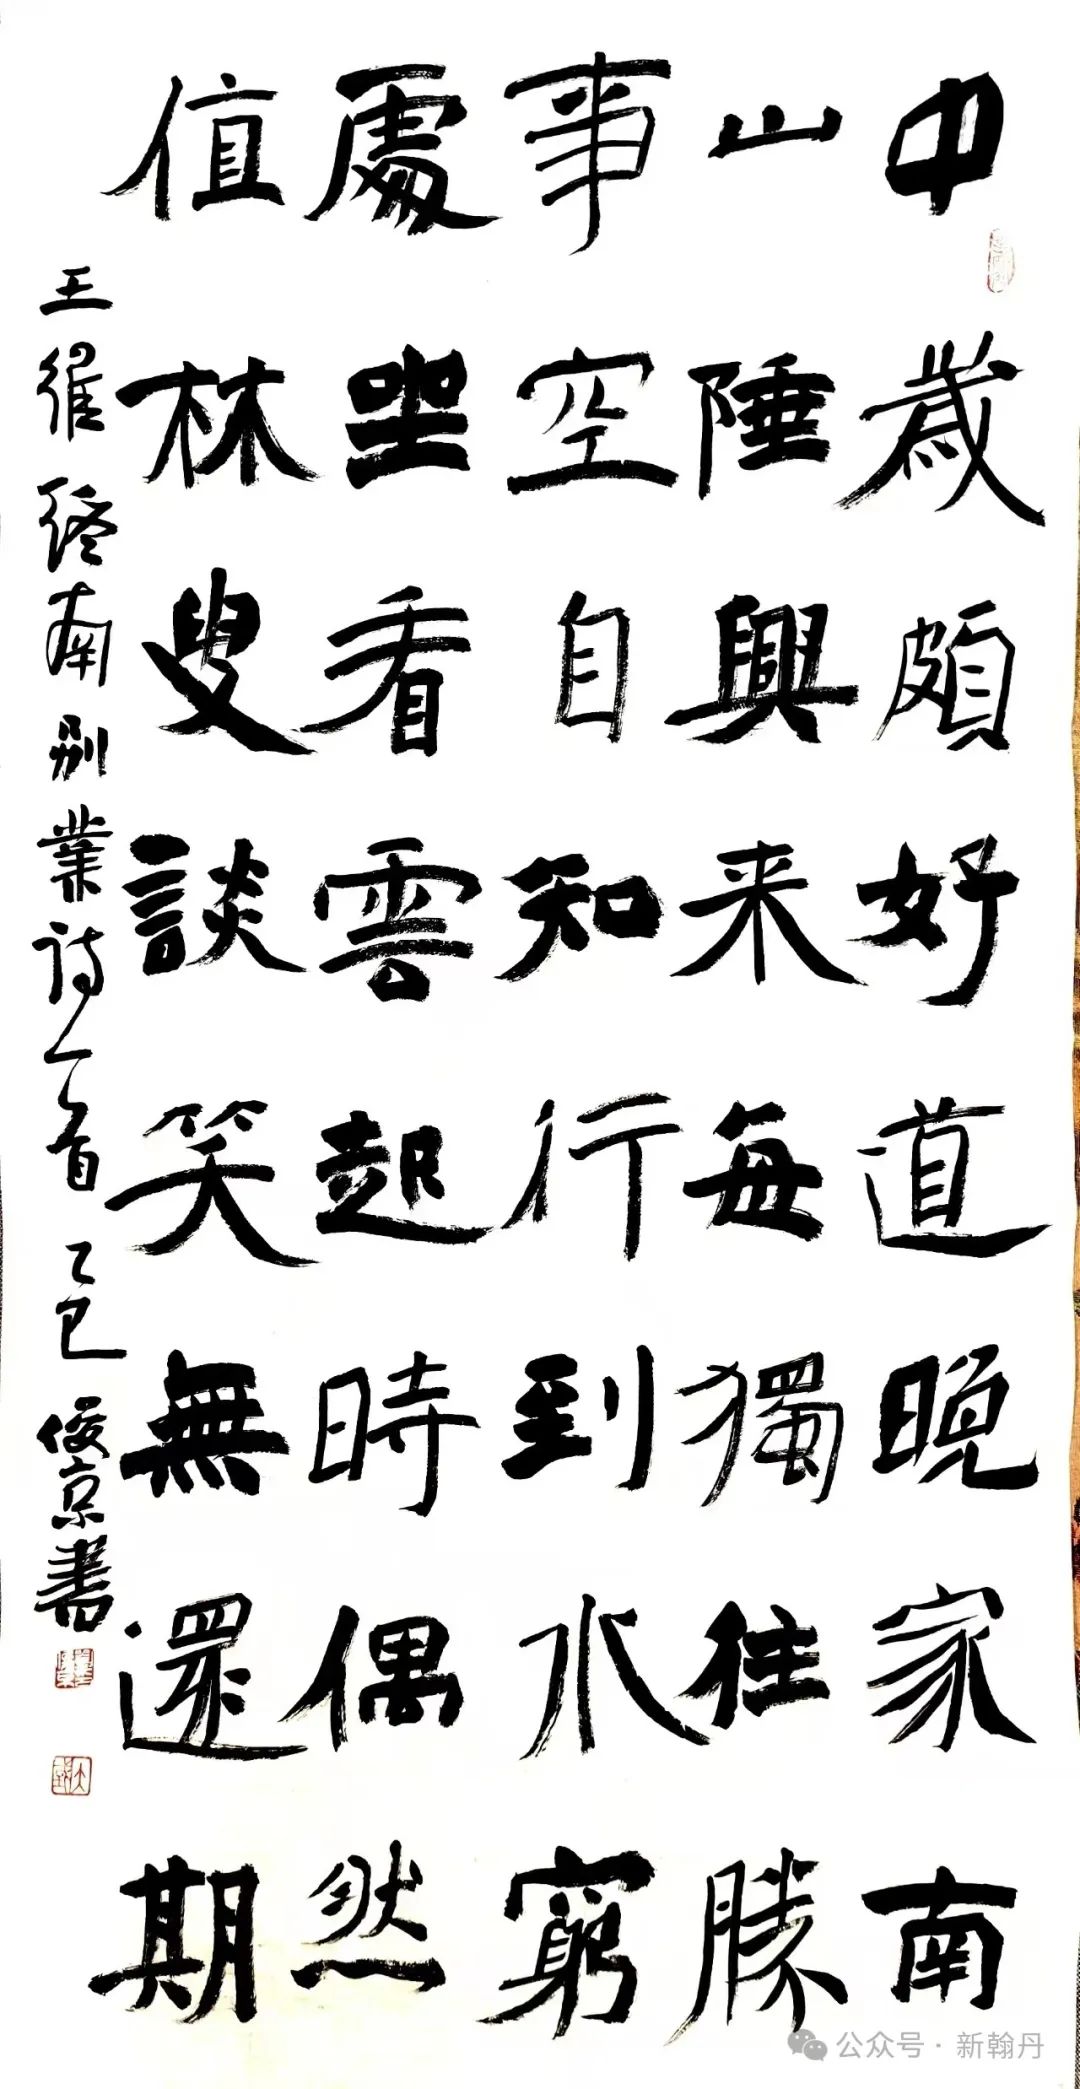 中歲頗好道晚家南
山陲興来每獨往勝
事空自知行到水窮
處坐看雲起時偶然
值林叟談笑無還期
王維終南別業詩一首 乙巳 俊京書
公众号·新翰丹